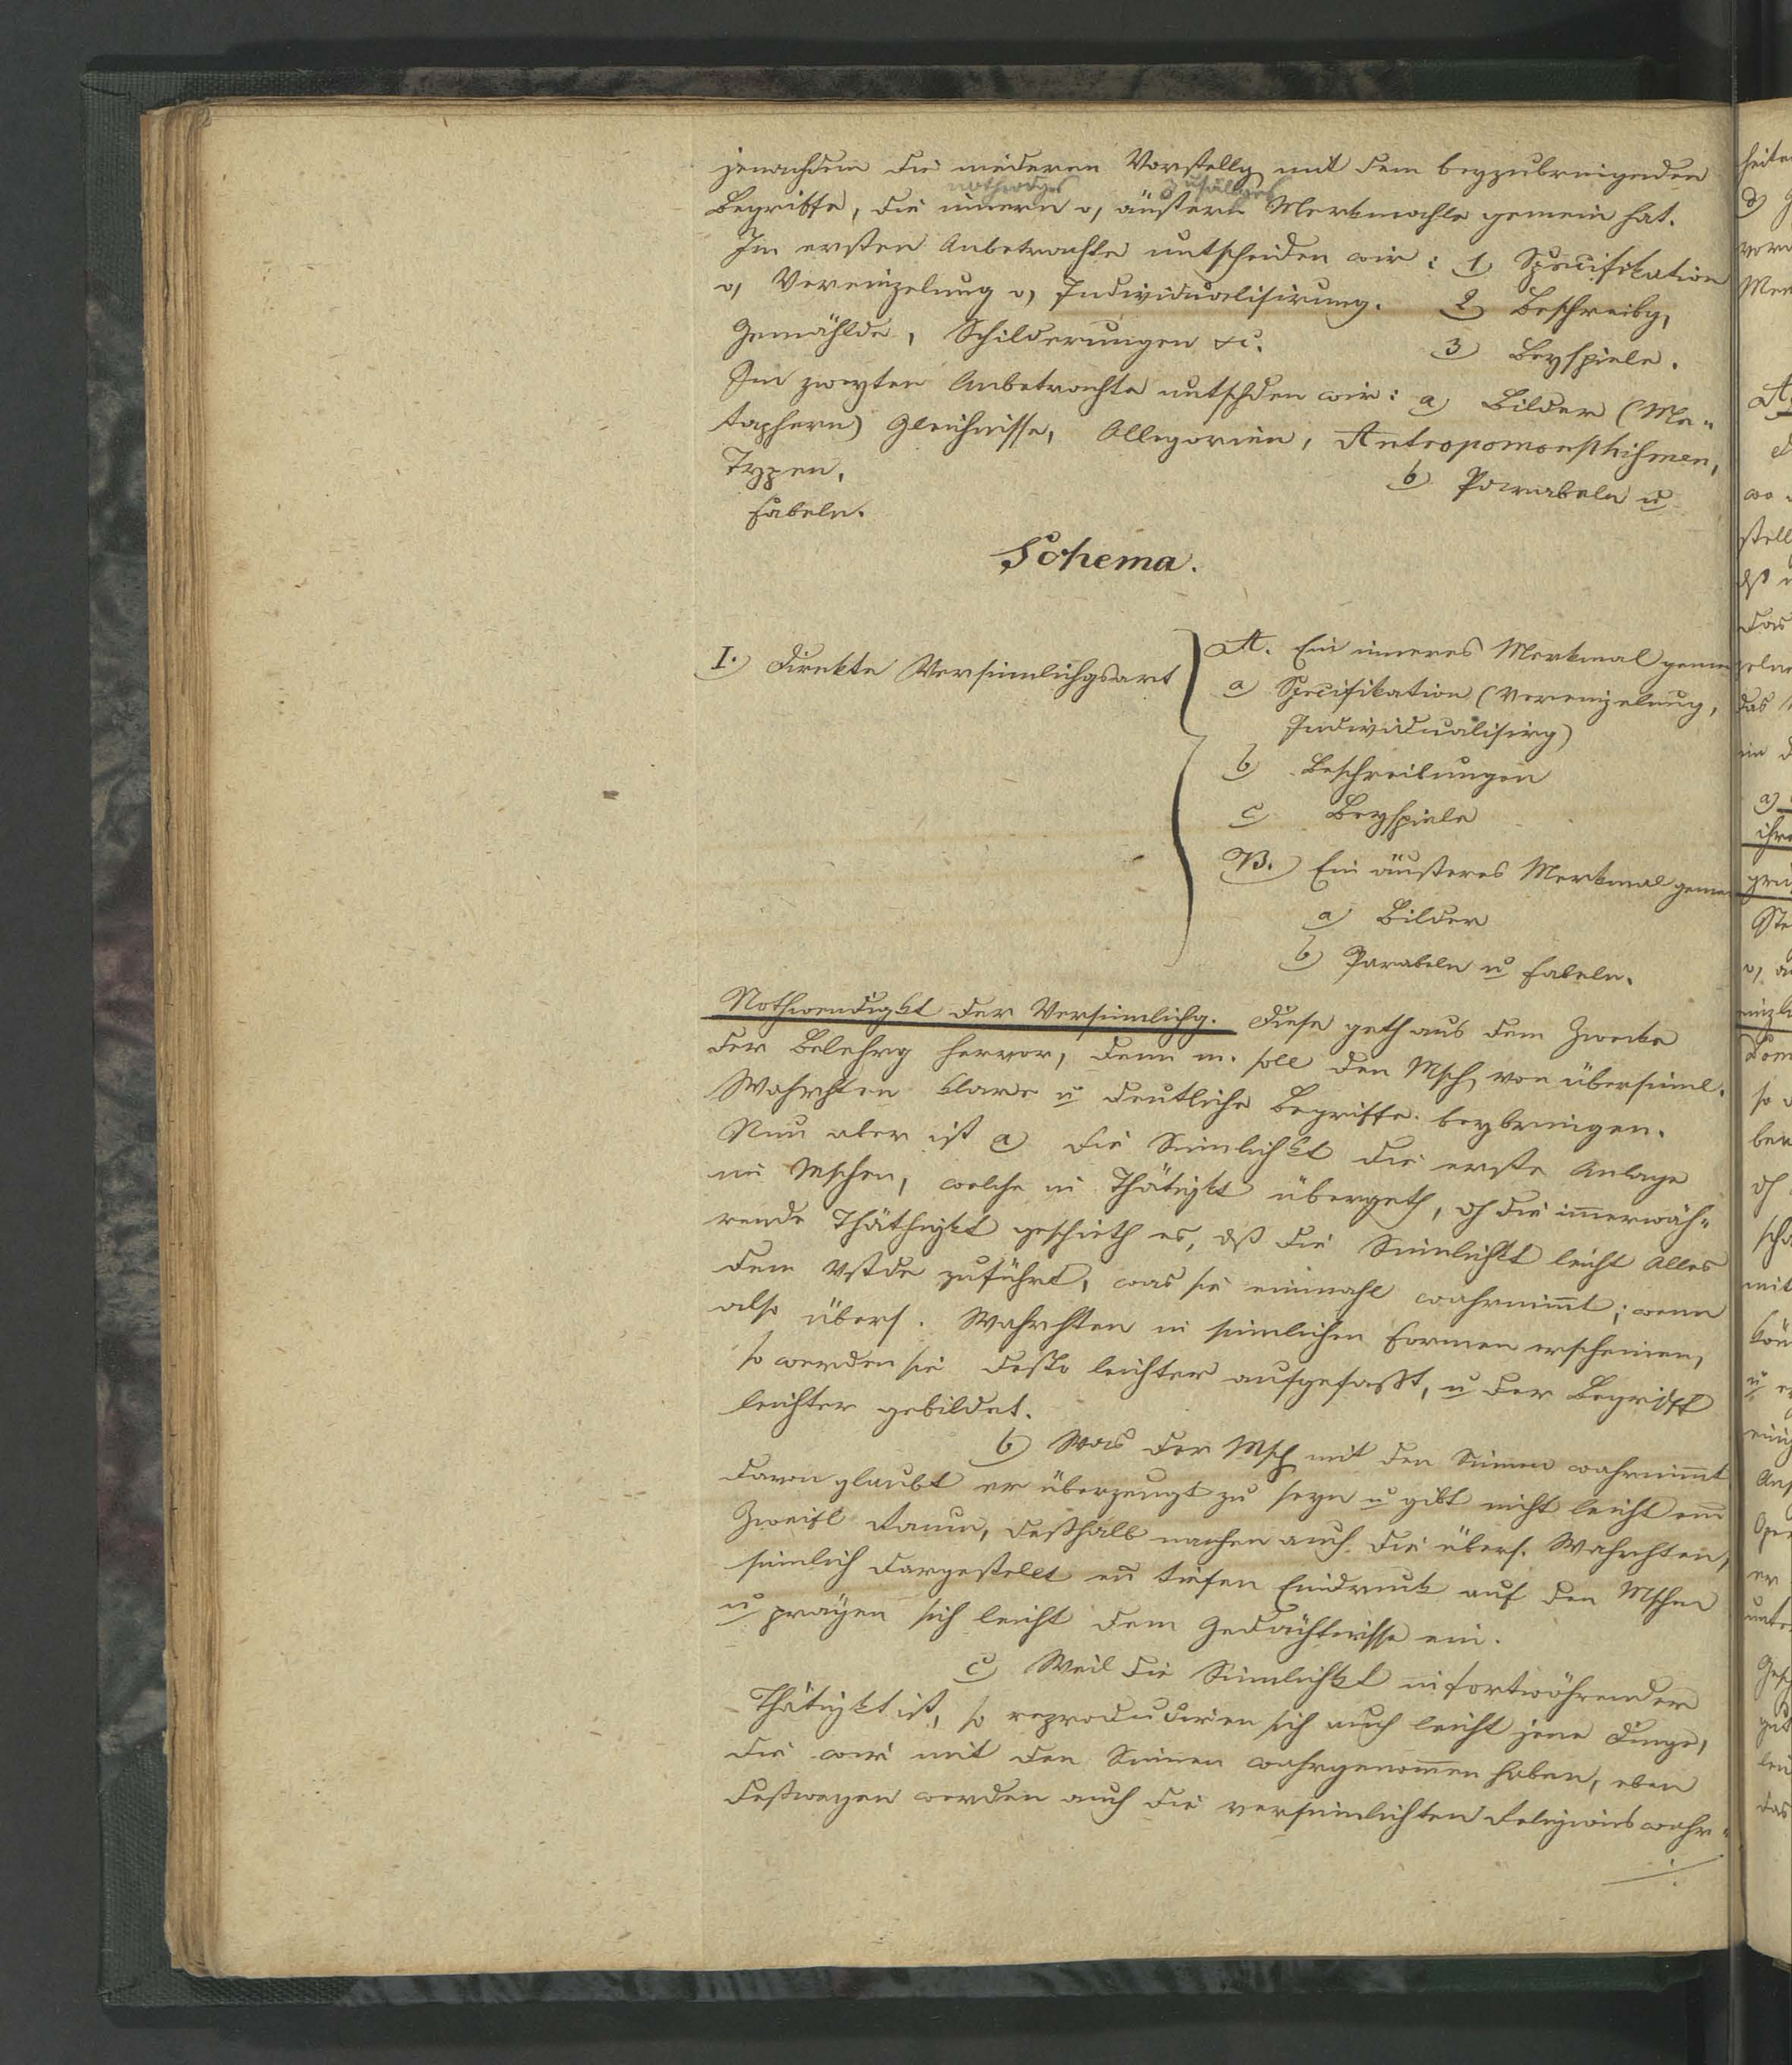 jenachdem die niederen Vorstellg mit dem beyzubringenden
nothwdges zufälliges
Begriffe, die innern o, äußern Merkmahle gemein hat.
Im ersten Anbetrachte untscheiden wir: 1) Specifikation
o, Vereinzelung o, Individualisirung. 2) Beschreibg,
Gemählde, Schilderungen &c. 3) Beyspiele.
Im zweyten Anbetrachte untschden wir: a) Bilder (Me-
taphern) Gleichnisse, Allegorien, Antropomorphismen,
Typen, b) Parabeln u
Fabeln.
Schema.
I.) Direkte Versinnlichgsart
A. Ein inneres Merkmal gemein
a) Specifikation (Vereinzelung,
Individualisirg)
b) Beschreibungen
c) Beyspiele
B.) Ein äußeres Merkmal gemein
a) Bilder
b) Parabeln u Fabeln.
Nothwendigkt der Versinnlichg. Diese geth aus dem Zwecke
der Belehrg hervor, denn m. soll den Msch von übersinnl.
Wahrhten klare u deutliche Begriffe beybringen.
Nun aber ist a) die Sinnlichkt die erste Anlage
im Mschen, welche in Thätigkt übergeth, dh die immerwäh-
rende Thäthigkt geschieth es, dß die Sinnlichkt leicht Alles
dem Vstde zuführt, was sie einmahl wahrnimmt; wenn
also übers. Wahrhten in sinnlichen Formen erscheinen,
so werden sie desto leichter aufgefaßt, u der Begriff
leichter gebildet.
b) Was der Msch mit den Sinnen wahrnimmt
davon glaubt er überzeugt zu seyn u gibt nicht leicht einm
Zweifl Raum, deßhalb machen auch die übers. Wahrhten,
sinnlich dargestellt ein tiefen Eindruck auf den Mschen
u prägen sich leicht dem Gedächtnisse ein.
c) Weil die Sinnlichkt in fortwährender
Thätigkt ist, so reproduciren sich auch leicht jene Dinge,
die wir mit den Sinnen wahrgenommen haben, eben
deßwegen werden auch die versinnlichten Religionswahr-